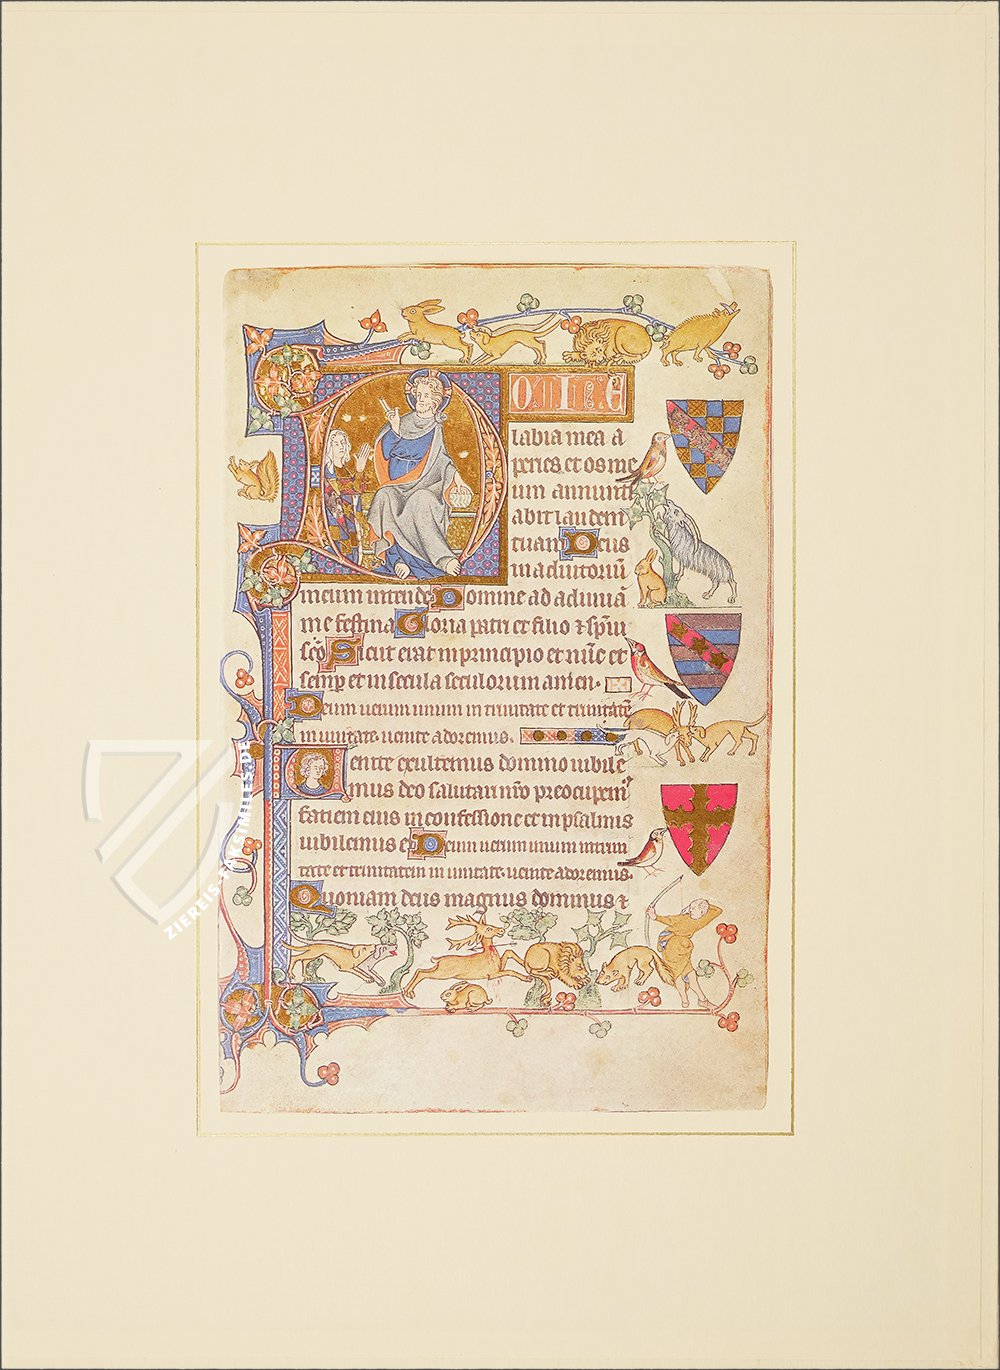 DOMINE
labia mea a
peries et os me
um annunti
abit laudem
tuam Deus
in adiutoriū
meum intende Domine ad adiuuā
me festina Gloria patri et filio ⁊ sp̄ui
sc̄o Sicut erat in principio et nūc et
semp et in secula seculorum amen.
Deum uerum unum in trinitate et trinitatē
in unitate. uenite adoremus.
Venite exultemus domino iubile
mus deo salutari nr̄o preocupem᾽
faciem eius in confessione et in psalmis
iubilemus ei Deum uerum unum in trini
tate et trinitatem in unitate. uenite adoremus.
Quoniam deus magnus dominus ⁊
ZIEREIS-FAKSIMILES.DE